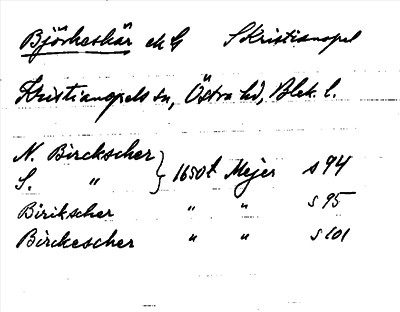 Björkeskär ek G S Kristianopel
Kristianopels sn, Östra hd, Blek. l.
N. Birckscher } 1650t Mejer s 94
S. "
Birikscher " " s 95
Birckescher " " s 101